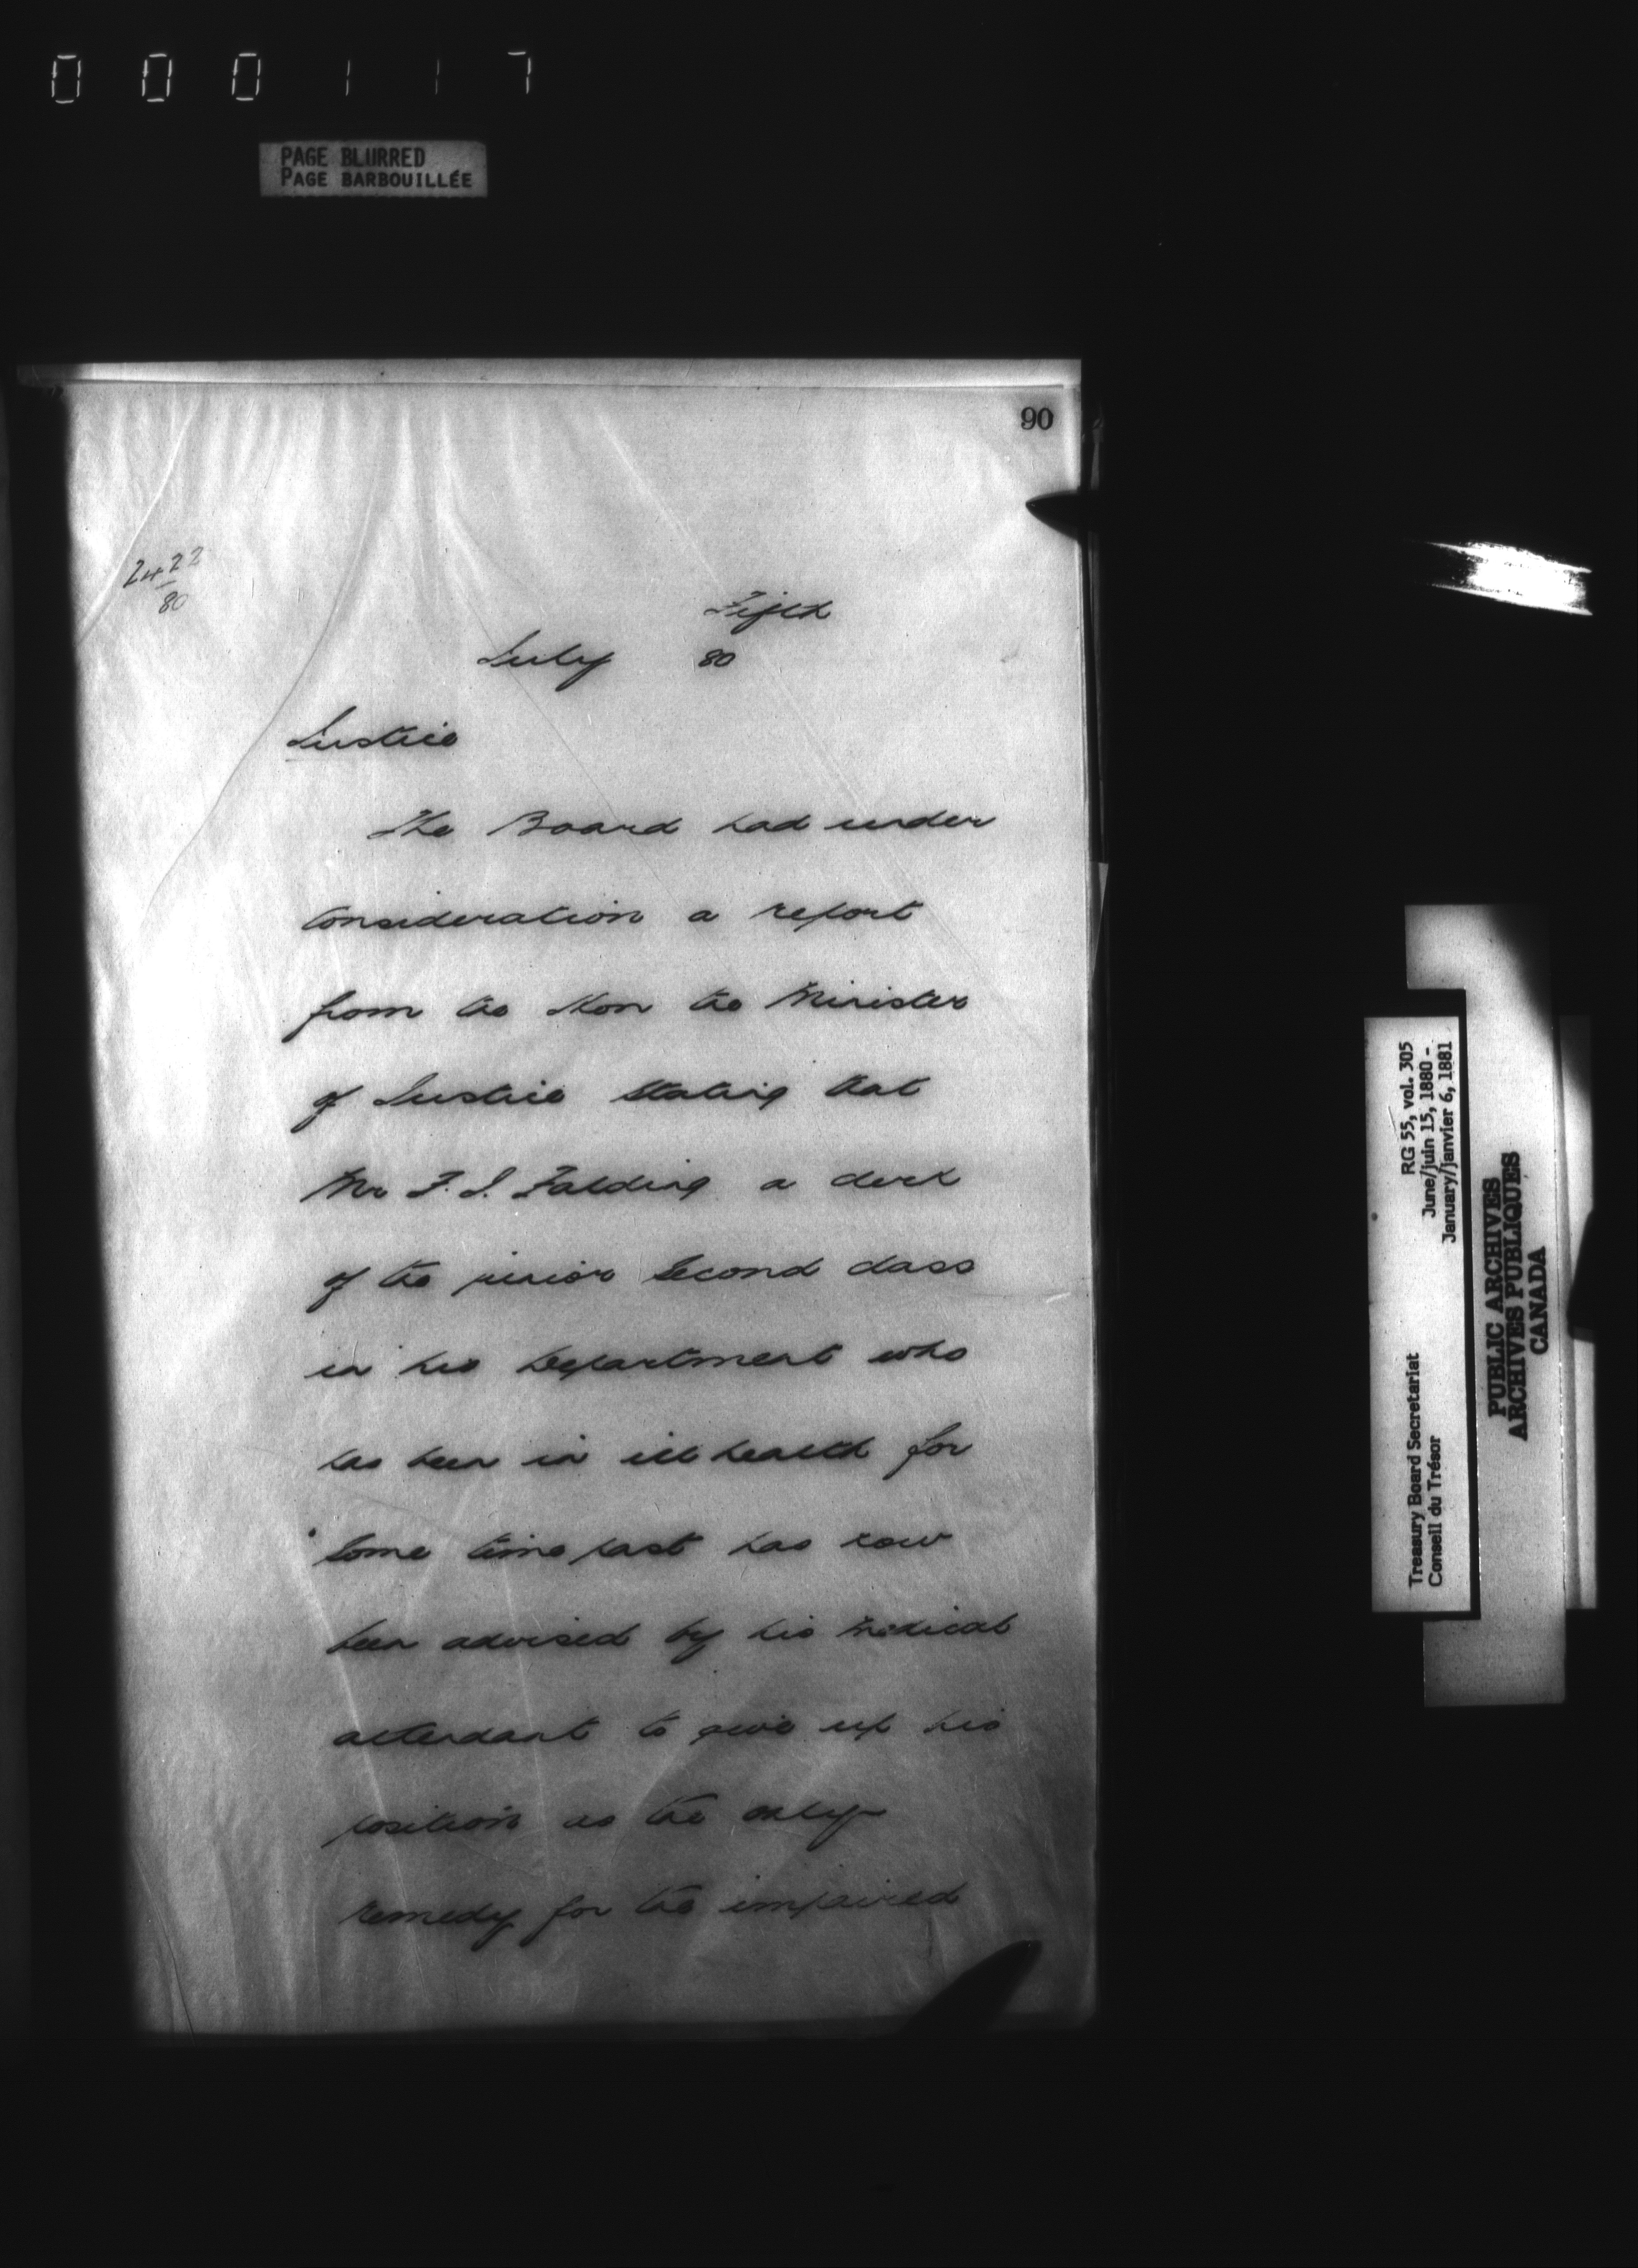 000117
PAGE BLURRED
PAGE BARBOUILLÉE
90
2422
80
Fifth
July 80
Justice
The Board had under
consideration a report
from the Hon the Minister
of Justice stating that
Mr F. J. Falding a clerk
of the junior second class
in his Department who
has been in ill health for
some time past has now
been advised by his medical
attendant to give up his
position as the only
remedy for the impaired
RG 55, vol. 305
June/juin 15, 1880 -
January/janvier 6, 1881
Treasury Board Secretariat
Conseil du Trésor
PUBLIC ARCHIVES
ARCHIVES PUBLIQUES
CANADA